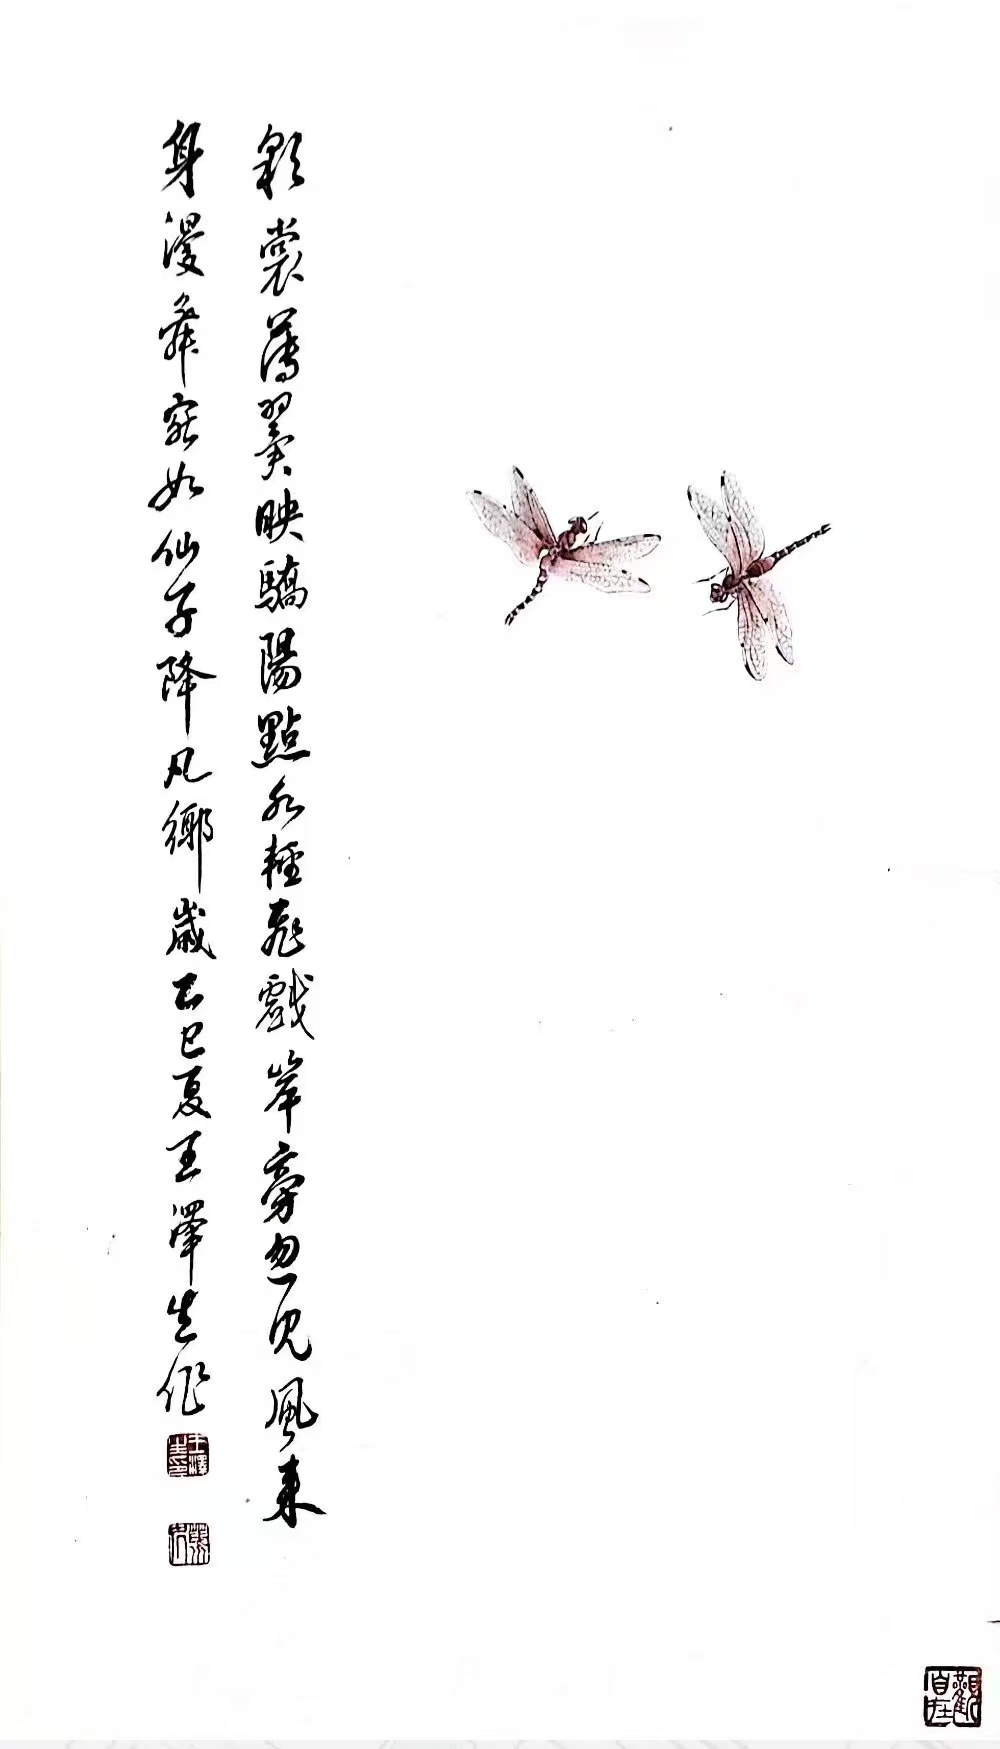 彩裳薄翼映驕陽點水輕飛戲岸旁忽見風來
身漫舞宛如仙子降凡鄉歲乙巳夏王澤生作
王澤生印
觀自在